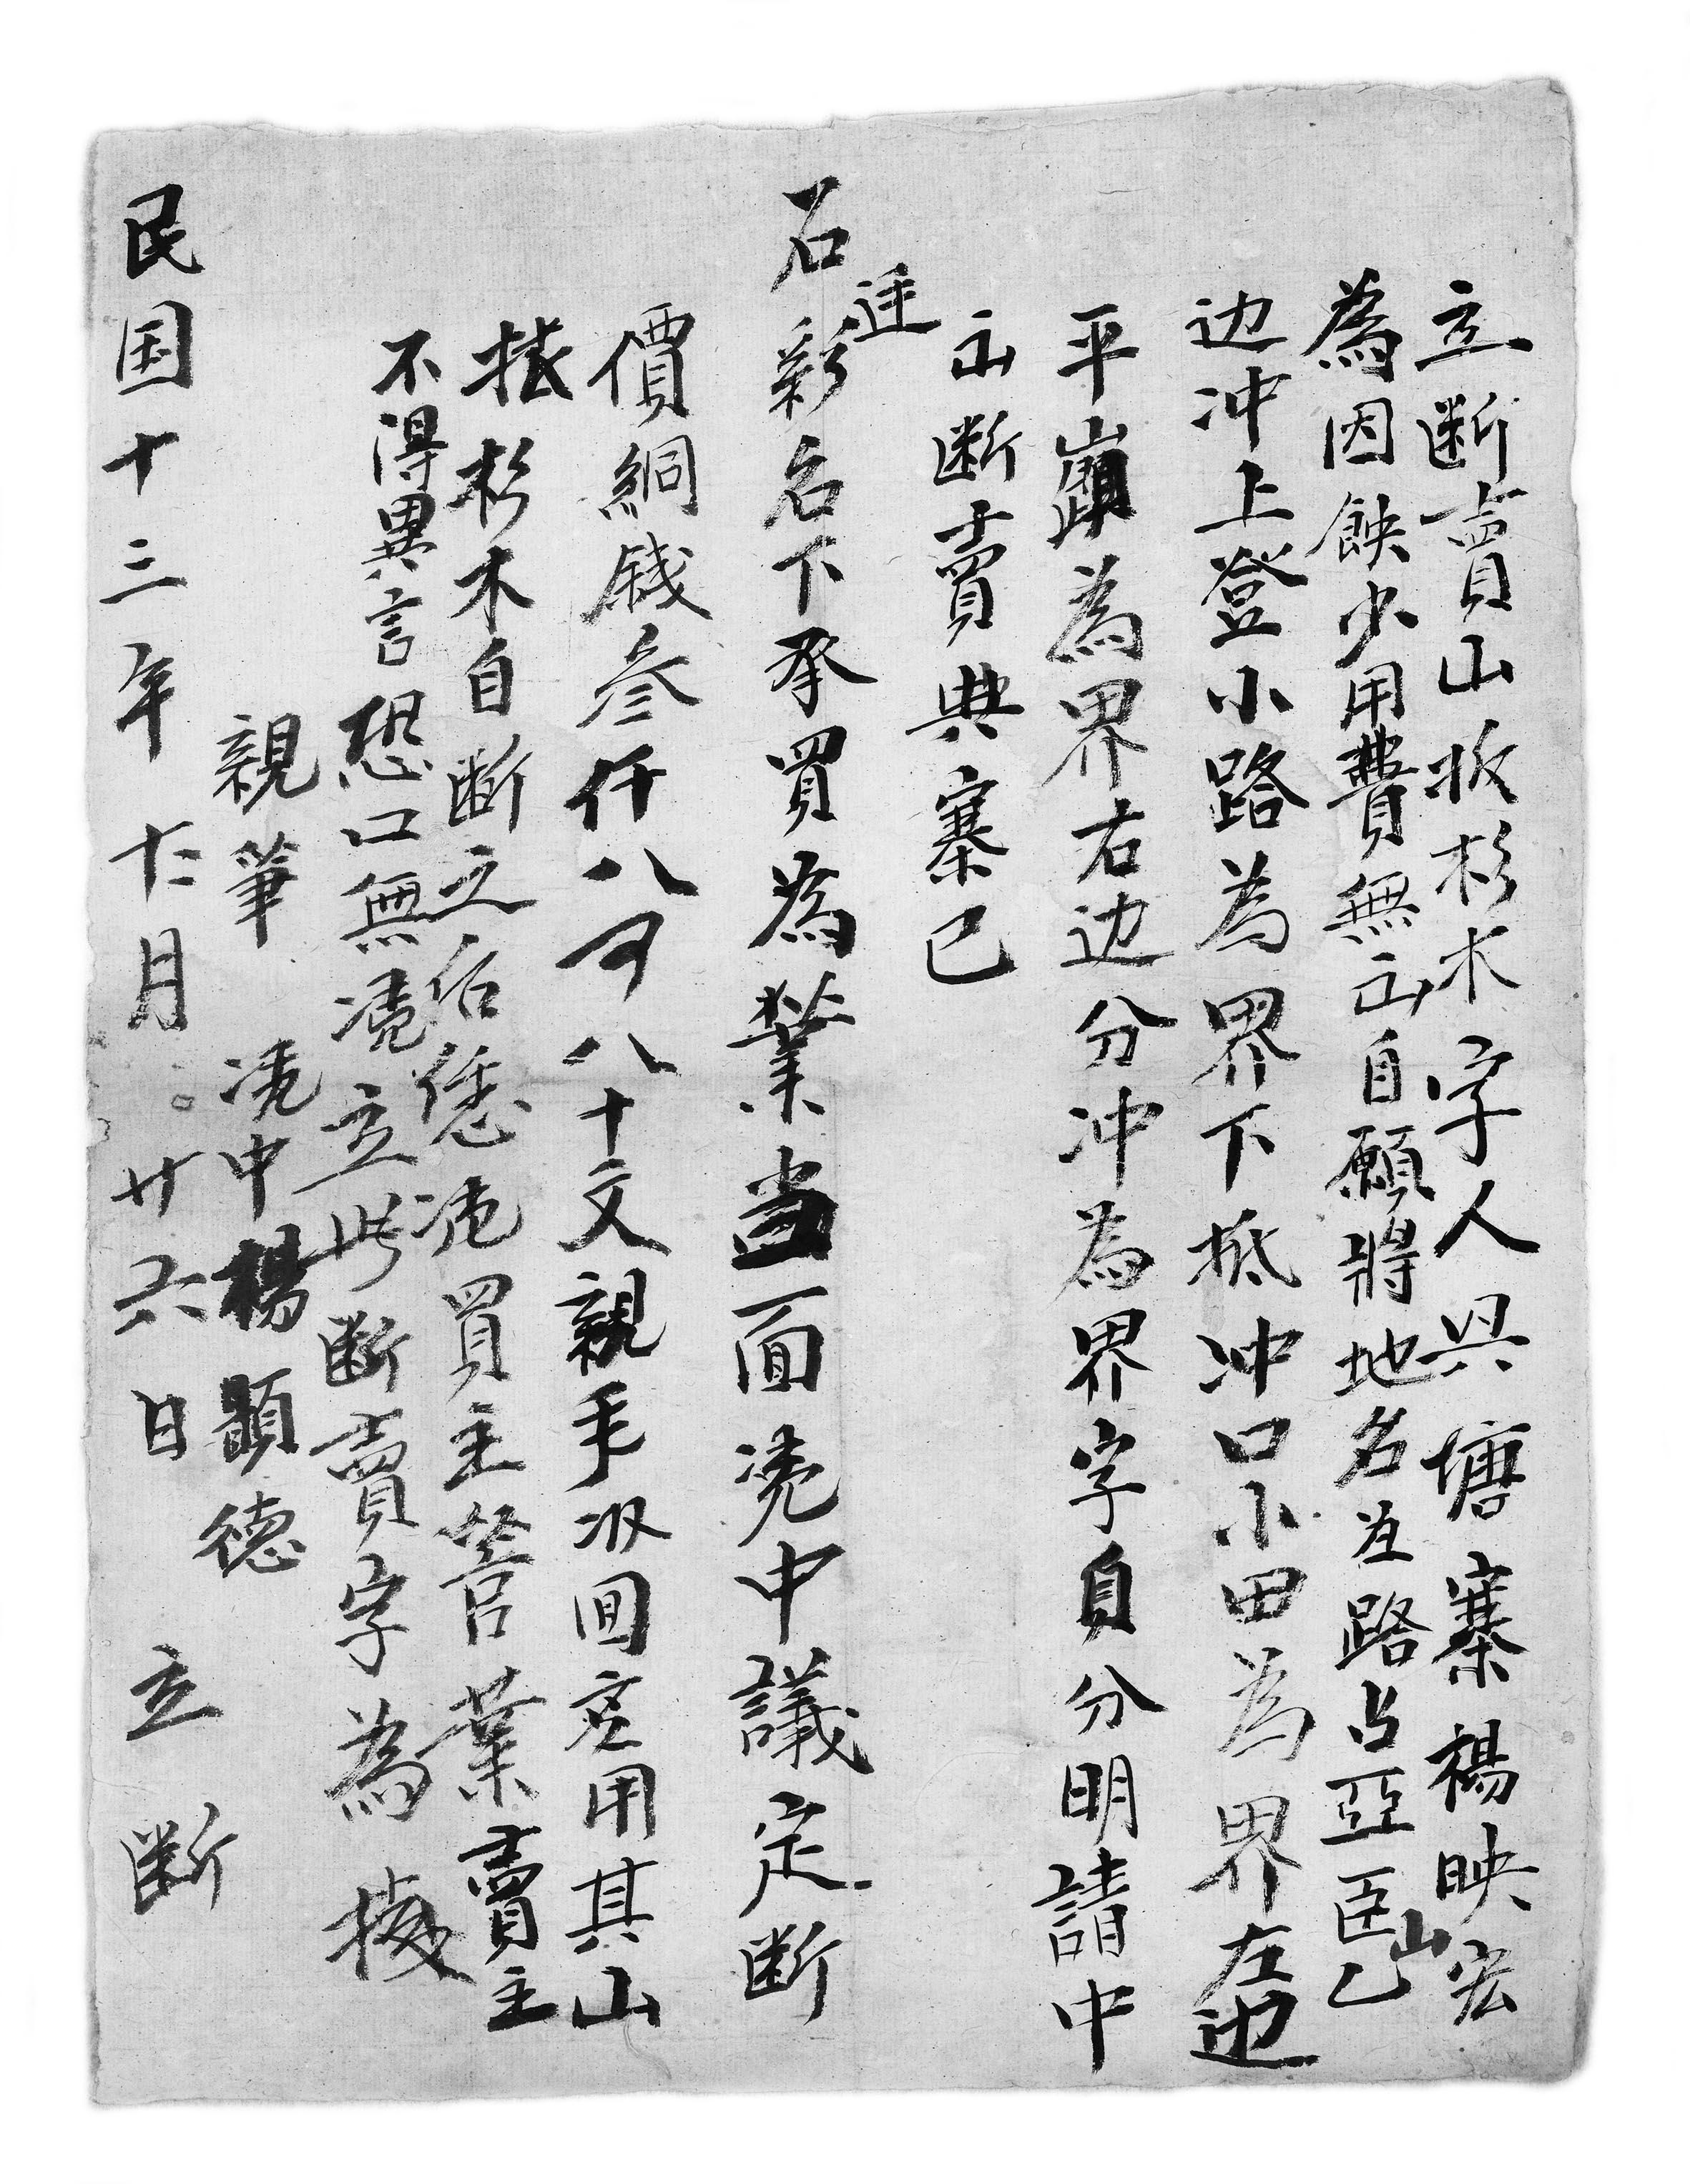 立断賣山坂杉木字人具塘寨楊映宏
為因缺少用費無出自願將地名为路占亞臣山乙
边冲上登小路為界下抵冲口小田為界左边
平嶺為界右边分冲為界字自分明請中
出断賣與寨已
迋
石彩名下承買為業当面凴中議定断
價銅錢叁仟八百八十文親手収囬应用其山
坂杉木自断之后恁凴買主管業賣主
不得異言恐口無凴立此断賣字為據
親筆 凴中楊顕德
民国十三年十二月廿六日 立断